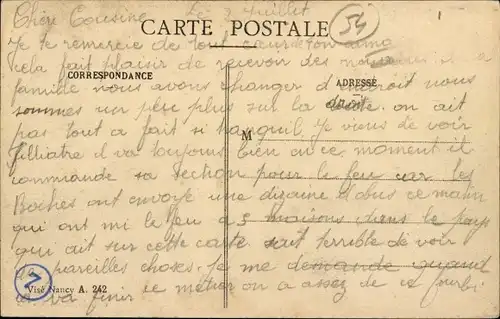 Chère Cousine Le 3 Juillet
54
CARTE POSTALE
Je te remercie de tout cœur de ton
cela fait plaisir de recevoir des
CORRESPONDANCE
ADRESSE
famille nous avons changer d'endroit nous
sommes un peu plus sur la droite on ait
droit
pas tout a fait si tranquil. Je viens de voir
M
filliatre il va toujours bien en ce moment il
commande sa section pour le feu car les
Boches ont envoyé une dizaine d'obus ce matin
qui ont mi le feu a 3 maisons dans le pays
qui ait sur cette carte sait terrible de voir
pareilles choses. Je me demande quand
Visé Nancy A. 242
va finir ce métier on a assez de ce fourbi